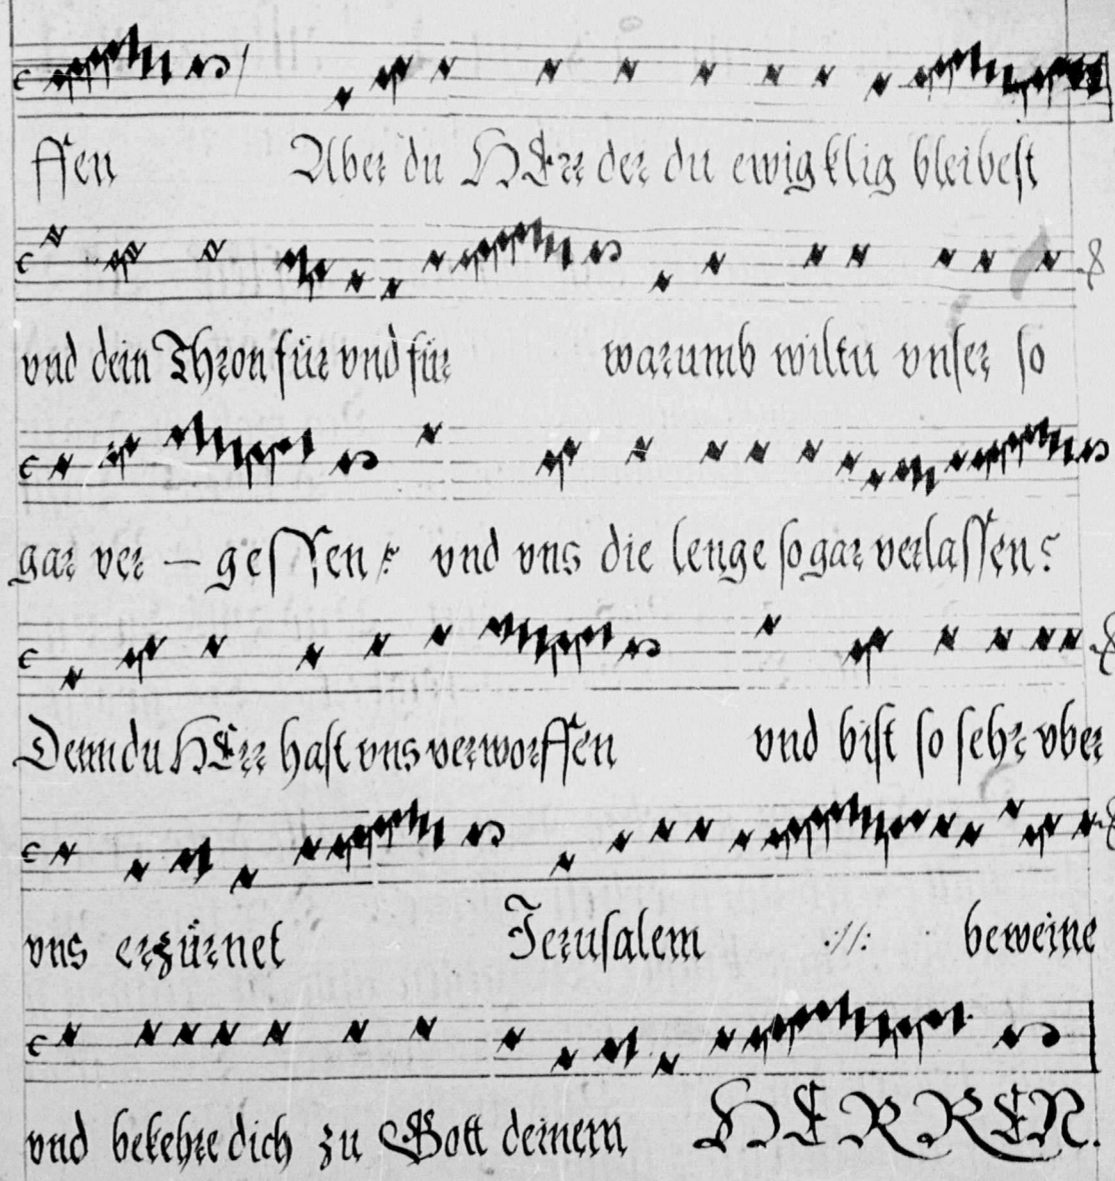 ssen Aber du HErr der du ewigklig bleibest
vnd dein Thron für vnd für warumb wiltu vnser so
gar ver – gessen? vnd vns die lenge so gar verlassen?
Denn du HErr hast vns verworffen vnd bist so sehr vber
vns erzürnet Jerusalem ://: beweine
vnd bekehre dich zu Gott deinem HERREN.